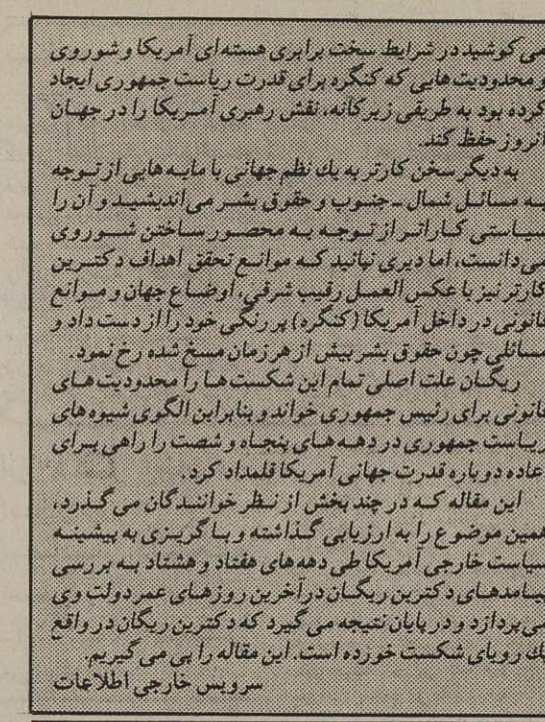 می کوشید در شرایط سخت برابری هسته ای آمریکا و شوروی
و محدودیت هایی که کنگره برای قدرت ریاست جمهوری ایجاد
کرده بود به طریقی زیرکانه، نقش رهبری آمریکا را در جهان
آنروز حفظ کند.
به دیگر سخن کارتر به یك نظم جهانی با مایه هایی از توجه
به مسائل شمال ـ جنوب و حقوق بشر می اندیشید و آن را
سیاستی کاراتر از توجه به محصور ساختن شوروی
می دانست، اما دیری نپائید که موانع تحقق اهداف دکترین
کارتر نیز با عکس العمل رقیب شرقی، اوضاع جهان و موانع
قانونی در داخل آمریکا (کنگره) پررنگی خود را از دست داد و
مسائلی چون حقوق بشر بیش از هر زمان مسخ شده رخ نمود.
ریگان علت اصلی تمام این شکست ها را محدودیت های
قانونی برای رئیس جمهوری خواند و بنابراین الگوی شیوه های
ریاست جمهوری در دهه های پنجاه و شصت را راهی برای
اعاده دوباره قدرت جهانی آمریکا قلمداد کرد.
این مقاله که در چند بخش از نظر خوانندگان می گذرد،
همین موضوع را به ارزیابی گذاشته و با گریزی به پیشینه
سیاست خارجی آمریکا طی دهه های هفتاد و هشتاد به بررسی
پیامدهای دکترین ریگان در آخرین روزهای عمر دولت وی
می پردازد و در پایان نتیجه می گیرد که دکترین ریگان در واقع
یك رویای شکست خورده است. این مقاله را پی می گیریم.
سرویس خارجی اطلاعات